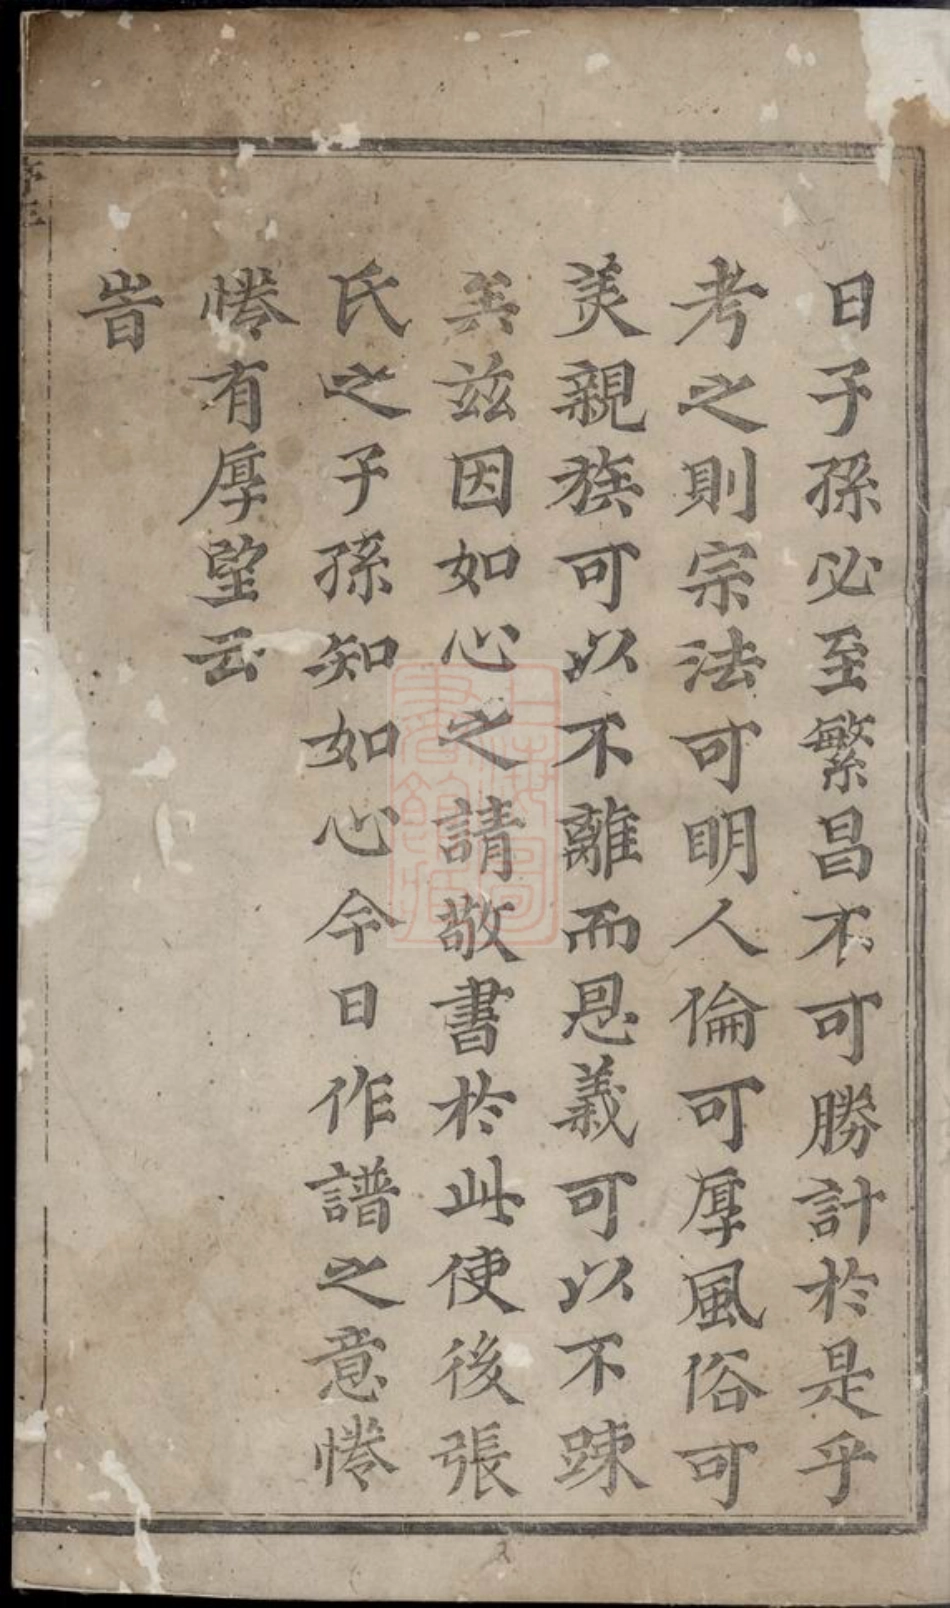 日子孫必至繁昌不可勝計於是乎
考之則宗法可明人倫可厚風俗可
美親族可以不離而恩義可以不踈
矣兹因如心之請敬書於此使後張
氏之子孫知如心今日作譜之意惓
惓有厚望云
旹
上海圖書館藏